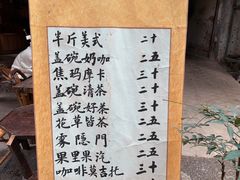 半斤美式 二十
盖碗奶咖 二五
焦玛摩卡 三十
盖碗清茶 二十
盖碗好茶 三五
花草皆茶 二五
雾隐門 二五
果里果汽 二五
咖啡莫吉托 三十